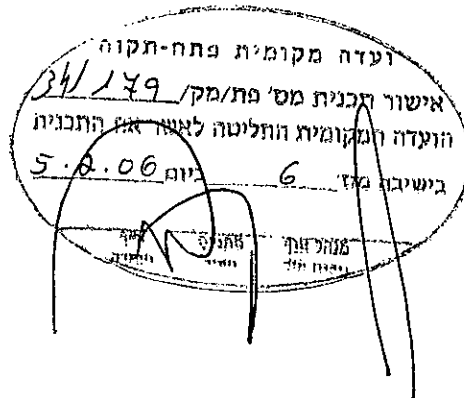 ועדה מקומית פתח-תקוה
אישור תכנית מס' פת/מק/ 34/179
הועדה המקומית החליטה לאשר את התכנית
בישיבה מס' 6 ביום 5.2.06
מנהל אגף